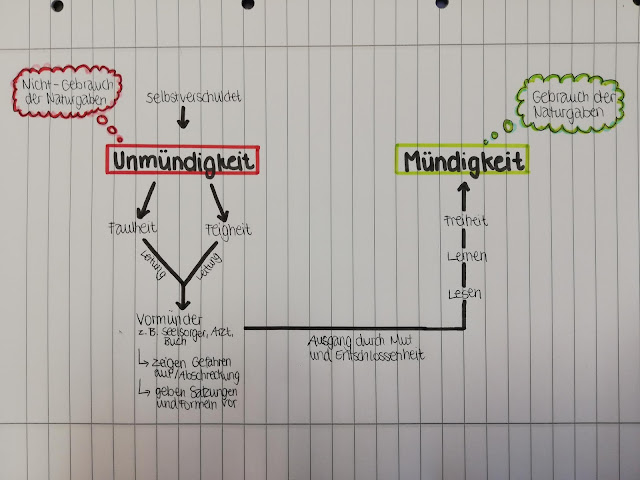 Nicht-Gebrauch
der Naturgaben
selbstverschuldet
Unmündigkeit
Faulheit
Feigheit
Leitung
Leitung
Vormünder
z.B. Seelsorger, Arzt,
Buch
↳ zeigen Gefahren
auf/Abschreckung
↳ geben Satzungen
und Formeln vor
Ausgang durch Mut
und Entschlossenheit
Gebrauch der
Naturgaben
Mündigkeit
Freiheit
Lernen
Lesen